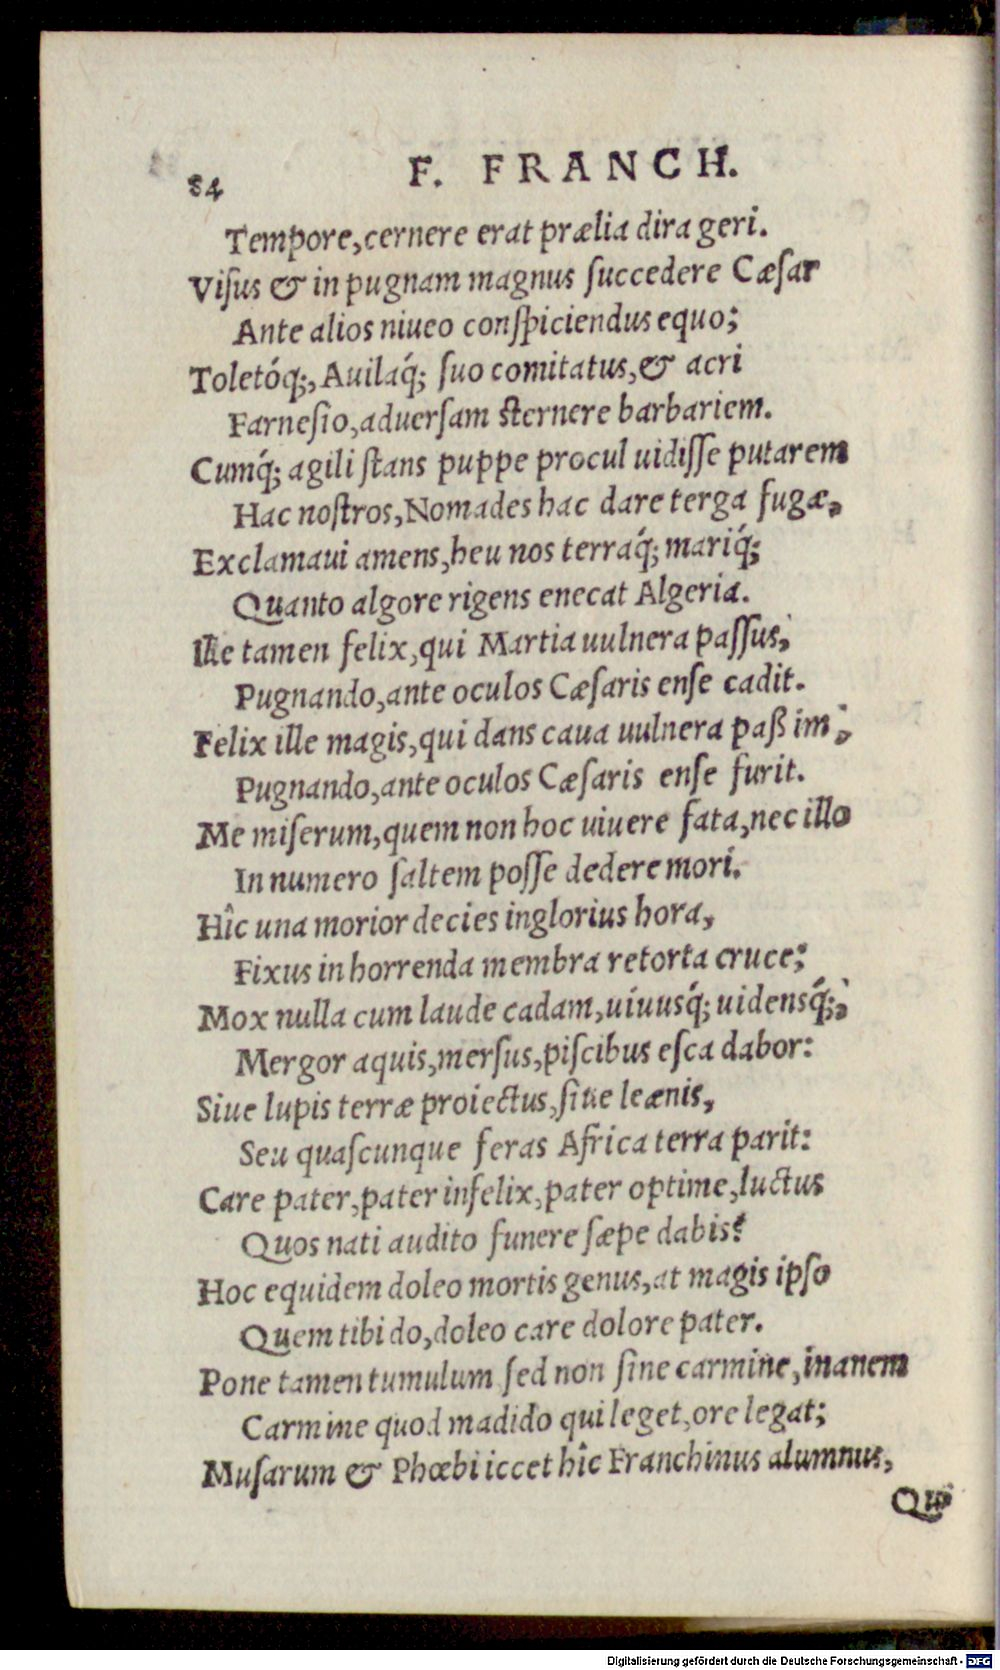 84
F. FRANCH.
Tempore, cernere erat prælia dira geri.
Viſus & in pugnam magnus ſuccedere Cæſar
Ante alios niueo conſpiciendus equo;
Toletóq́;, Auilaq́; ſuo comitatus, & acri
Farneſio, aduerſam ſternere barbariem.
Cumq́; agili ſtans puppe procul uidiſſe putarem
Hac noſtros, Nomades hac dare terga fugæ,
Exclamaui amens, heu nos terraq́; mariq́;
Quanto algore rigens enecat Algeria.
Ille tamen felix, qui Martia uulnera paſſus,
Pugnando, ante oculos Cæſaris enſe cadit.
Felix ille magis, qui dans caua uulnera paßim,
Pugnando, ante oculos Cæſaris enſe furit.
Me miſerum, quem non hoc uiuere fata, nec illo
In numero ſaltem poſſe dedere mori.
Hîc una morior decies inglorius hora,
Fixus in horrenda membra retorta cruce;
Mox nulla cum laude cadam, uiuusq́; uidensq́;,
Mergor aquis, merſus, piſcibus eſca dabor:
Siue lupis terræ proiectus, ſiue leænis,
Seu quaſcunque feras Africa terra parit:
Care pater, pater infelix, pater optime, luctus
Quos nati audito funere ſæpe dabis?
Hoc equidem doleo mortis genus, at magis ipſo
Quem tibi do, doleo care dolore pater.
Pone tamen tumulum ſed non ſine carmine, inanem
Carmine quod madido qui leget, ore legat;
Muſarum & Phœbi iccet hîc Franchinus alumnus,
Qui
Digitalisierung gefördert durch die Deutsche Forschungsgemeinschaft - DFG